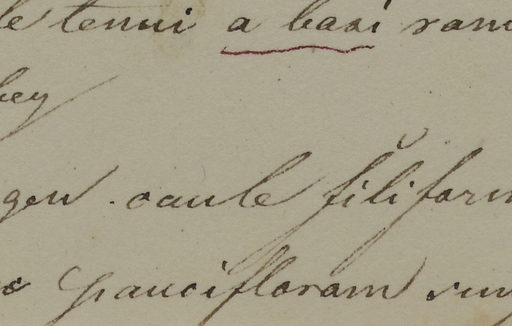 le tenui a basi ram
bey
gen. caule filiform
paucifloram sum